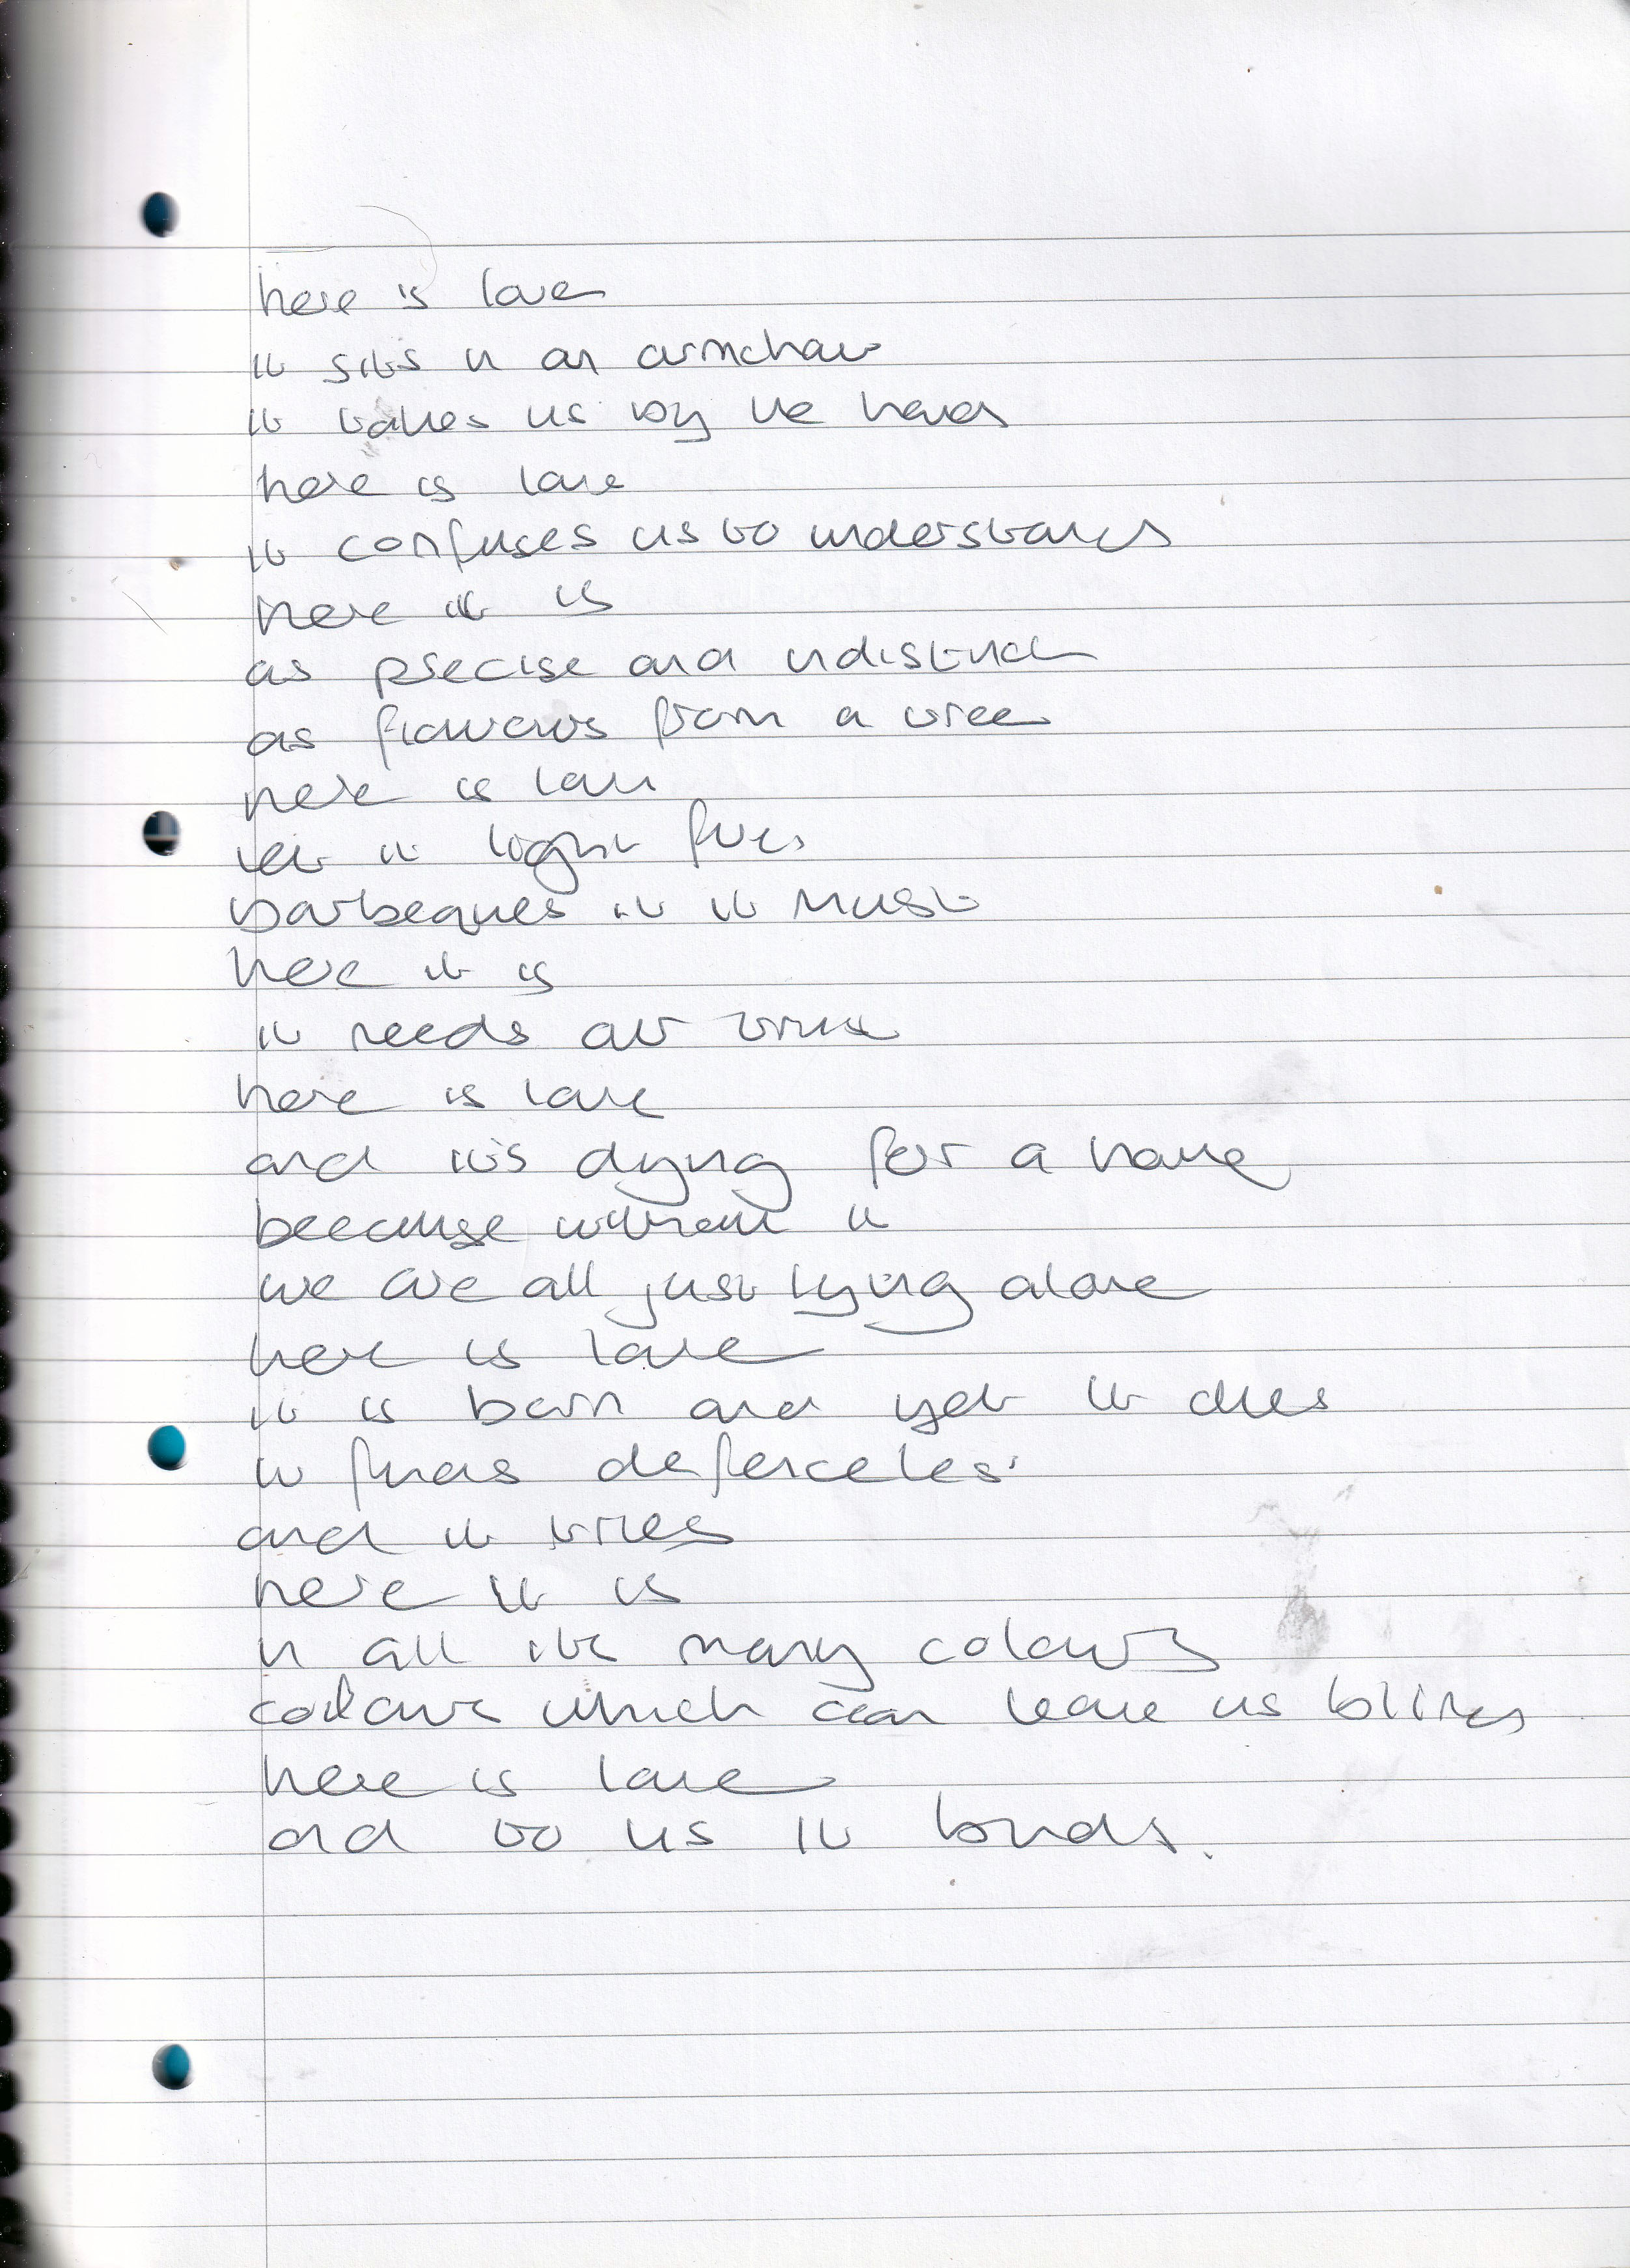 here is love
it sits in an armchair
it takes us by the hand
here is love
it confuses us to understand
here it is
as precise and indistinct
as flowers from a tree
here is love
let it light fires
barbeques if it must
here it is
it needs our trust
here is love
and it's dying for a home
because without it
we are all just lying alone
here is love
it is born and yet it dies
it finds defenceless
and it tries
here it is
in all its many colours
colours which can leave us blind
here is love
and to us it binds.